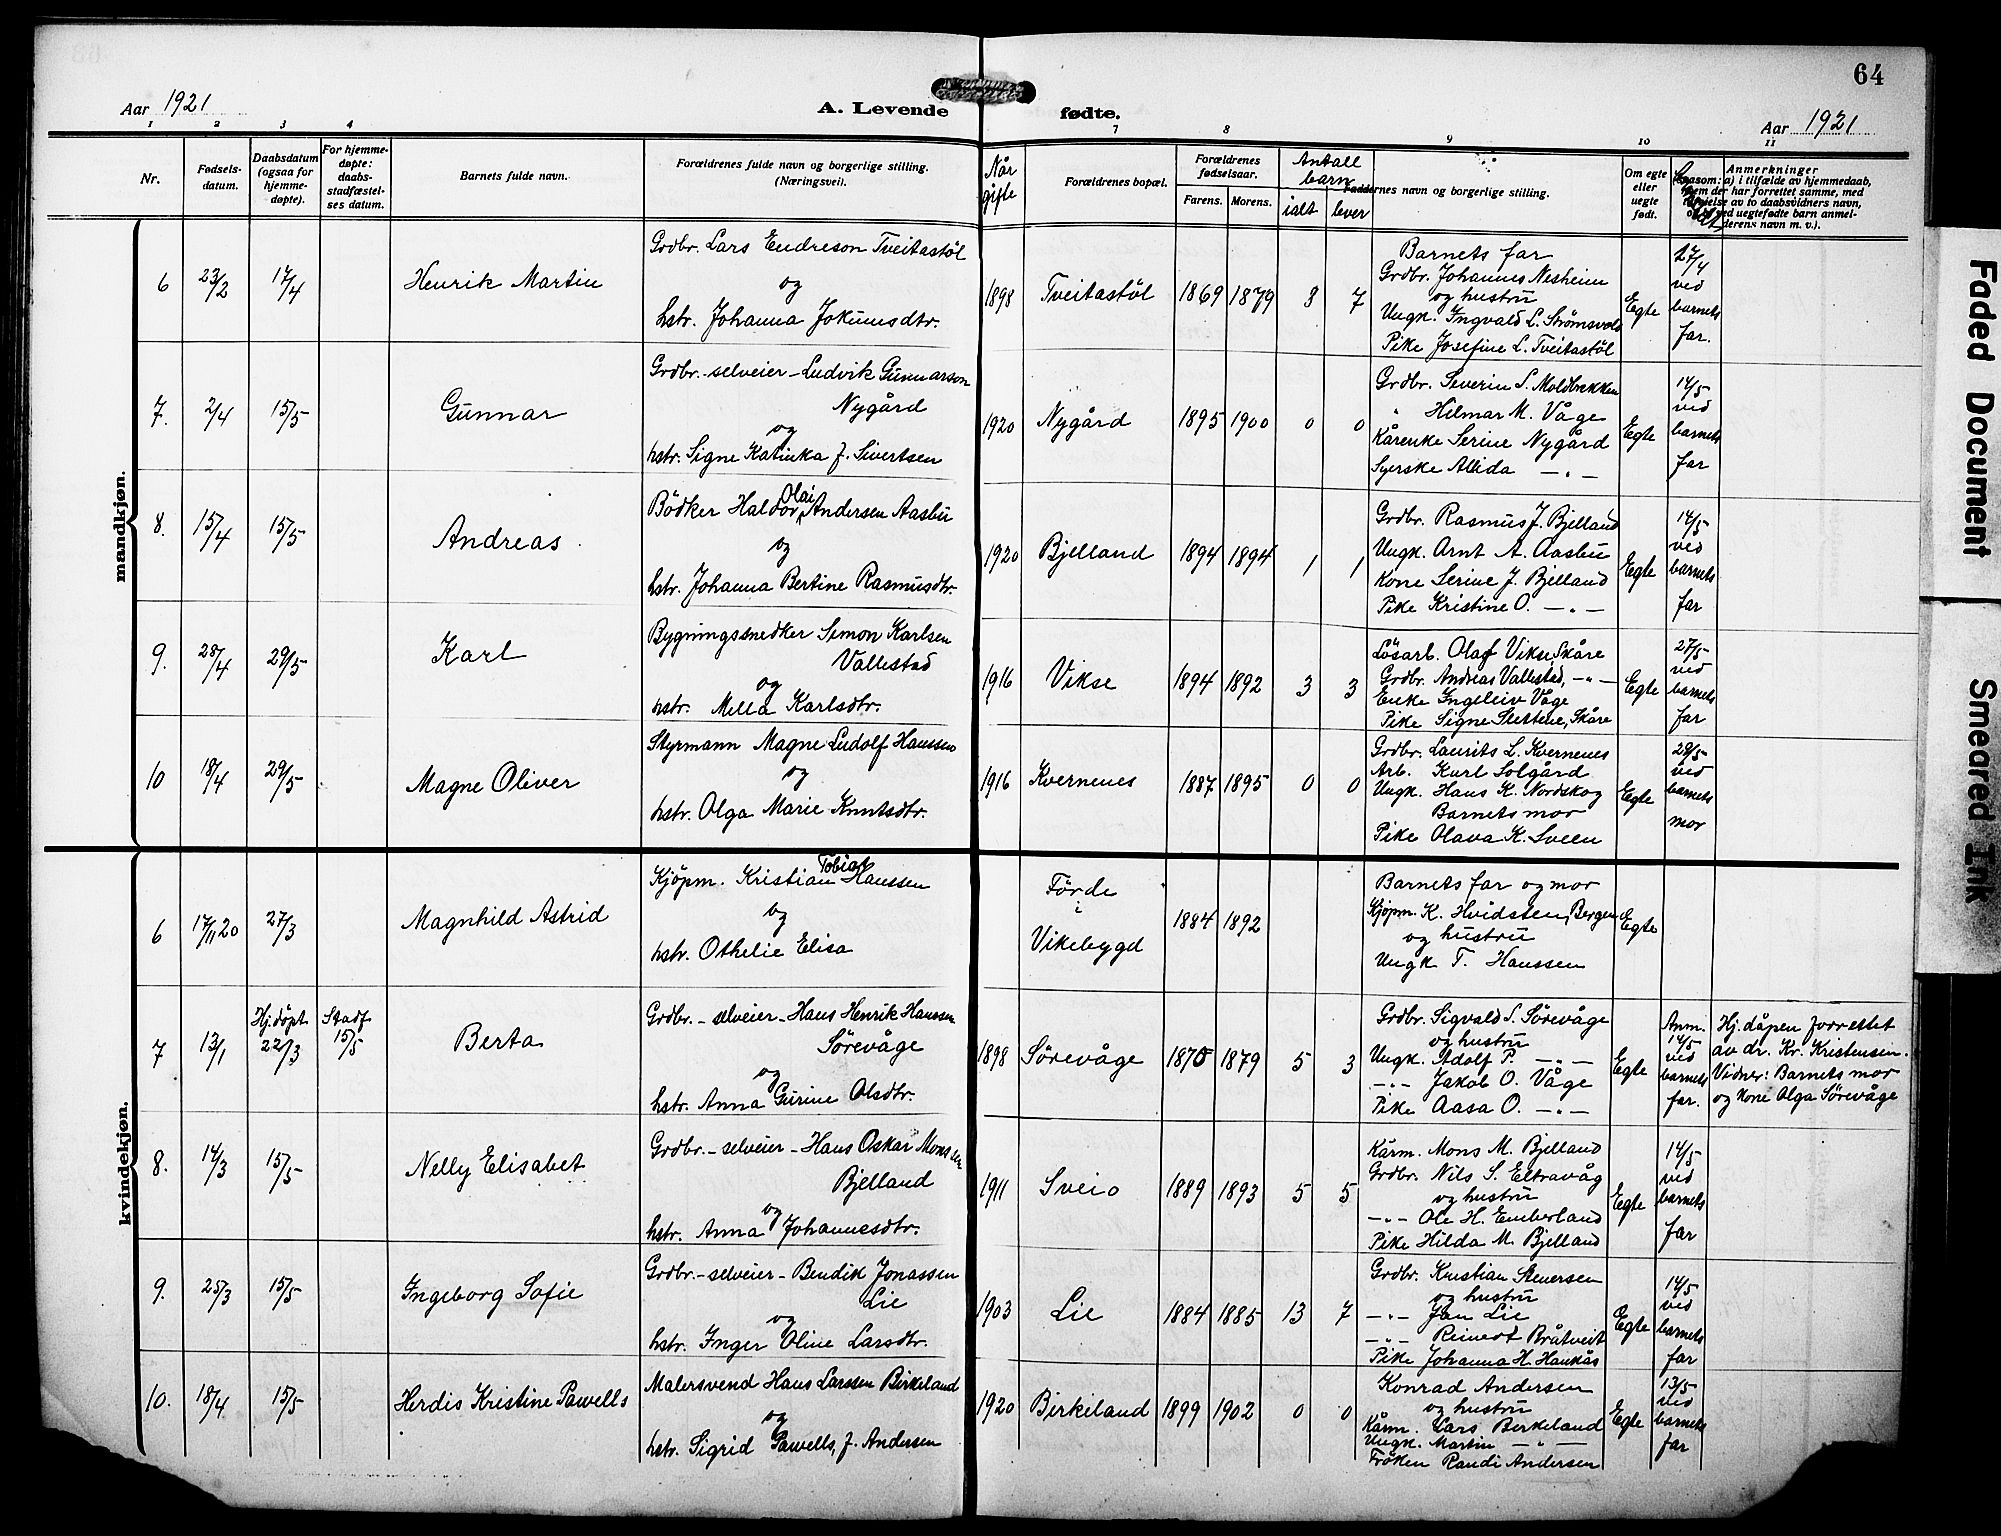 64
Aar 1921
A. Levende
fødte.
Aar 1921
1 2 3 4 7 8 9 10 11
Nr.
Fødsels-
datum.
Daabsdatum
(ogsaa for
hjemme-
døpte).
For hjemme-
døpte:
daabs-
stadfæstel-
ses datum.
Barnets fulde navn.
Forældrenes fulde navn og borgerlige stilling.
(Næringsvei).
Når
gifte
Forældrenes bopæl.
Forældrenes
fødselsaar.
Farens. Morens.
Antall
barn
ialt lever
Faddernes navn og borgerlige stilling.
Om egte
eller
uegte
født.
Anmerkninger
saasom: a) i tilfælde av hjemmedaab,
hvem der har forrettet samme, med
av to daabsvidners navn,
ved uegtefødte barn anmel-
derens navn m. v.).
mandkjøn.
6
23/2
17/4
Henrik Martin
Grdbr. Lars Endreson Tveitastöl
og
hstr. Johanna Jokumsdtr.
1898
Tveitastöl
1869 1879
8 7
Barnets far
Grdbr. Johannes Nesheim
og hustru
Ungk. Ingvald L. Strømsvold
Pike Josefine L. Tveitastöl
Egte
27/4
ved
barnets
far.
7.
2/4
15/5
Gunnar
Grdbr.-selveier-Ludvik Gunnarson
Nygård
og
hstr. Signe Katinka f. Sivertsen
1920
Nygård
1895 1900
0 0
Grdbr. Severin S. Moldbækken
" Hilmar M. Våge
Kårenke Serine Nygård
Syerske Alida -"-
Egte
14/5
ved
barnets
far
8.
15/4
15/5
Andreas
Olai
Bödker Haldor Andersen Aasbu
og
hstr. Johanna Bertine Rasmusdtr.
1920
Bjelland
1894 1894
1 1
Grdbr. Rasmus J. Bjelland
Ungk. Arnt A. Aasbu
Kone Serine J. Bjelland
Pike Kristine O. -"-
Egte
14/5
ved
barnets
far
9.
28/4
29/5
Karl
Bygningssnedker Simon Karlsen
Vallestad
og
hstr. Mella Karlsdtr.
1916
Vikse
1894 1892
3 3
Lösarb. Olaf Vikse, Skåre
Grdbr. Andreas Vallestad, -"-
Enke Ingeleiv Våge
Pike Signe Stettene, Skåre
Egte
27/5
ved
barnets
far
10
18/4
29/5
Magne Oliver
Styrmann Magne Ludolf Hanssen
og
hstr. Olga Marie Knutsdtr.
1916
Kvernenes
1887 1895
0 0
Grdbr. Laurits L. Kvernenes
Arb. Karl Solgård
Ungk. Hans K. Nordskog
Barnets mor
Pike Olava K. Sveen
Egte
29/5
ved
barnets
mor
kvindekjøn.
6
17/11 20
27/3
Magnhild Astrid
Tobias
Kjöpm. Kristian Hanssen
og
hstr. Othelie Elisa
Förde
i
Vikebygd
1884 1892
Barnets far og mor
Kjöpm. K. Hvidsten, Bergen
og hustru
Ungk T. Hanssen
Egte
7
13/1
Hj.döpt
22/3
Stadf.
15/5
Berta
Grdbr.-selveier-Hans Henrik Hanssen
Sörevåge
og
hstr. Anna Gurine Olsdtr.
1898
Sörevåge
1875 1879
5 3
Grdbr. Sigvald S. Sörevåge
og hustru
Ungk. Adolf P. -"-
-"- Jakob O. Våge
Pike Aasa O. -"-
Egte
Anm.
14/5
ved
barnets
far.
Hj.dåpen forrettet
av dr. Kr. Kristensen.
Vidner: Barnets mor
og kone Olga Sörevåge
8.
14/3
15/5
Nelly Elisabet
Grdbr.-selveier-Hans Oskar Monsen
Bjelland
og
hstr. Anna Johannesdtr.
1911
Sveio
1889 1893
5 5
Kårm. Mons M. Bjelland
Grdbr. Nils S. Eltravåg
og hustru
-"- Ole H. Emberland
Pike Hilda M. Bjelland
Egte
14/5
ved
barnets
far
9.
25/3
15/5
Ingeborg Sofie
Grdbr.-selveier-Bendik Jonassen
Lie
og
hstr. Inger Oline Larsdtr.
1903
Lie
1884 1885
13 7
Grdbr. Kristian Stenersen
og hustru
-"- Jan Lie
-"- Reinert Bråtveit
Pike Johanna H. Haukås
Egte
14/5
ved
barnets
far
10.
18/4
15/5
Herdis Kristine Pawells
Malersvend Hans Larssen Birkeland
og
hstr. Sigrid Pawells, f. Andersen
1920
Birkeland
1899 1902
0 0
Konrad Andersen
og hustru
Kårm. Lars Birkeland
Ungk. Martin -"-
Fröken Randi Andersen
Egte
13/5
ved
barnets
far
Faded Document
Smeared Ink